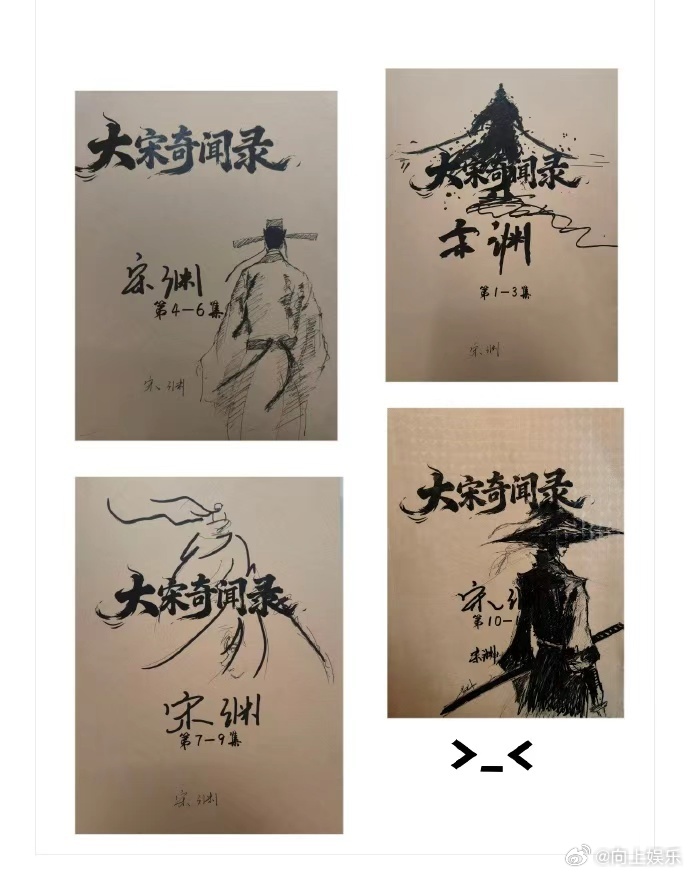 大宋奇闻录
宋渊
第4-6集
宋渊
大宋奇闻录
宋渊
第1-3集
宋渊
大宋奇闻录
宋渊
第7-9集
宋渊
大宋奇闻录
宋
第10-
宋渊
>_<
@向上娱乐